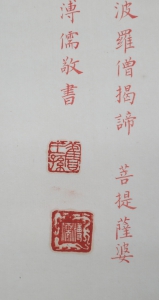 波羅僧揭諦　菩提薩婆
溥儒敬書